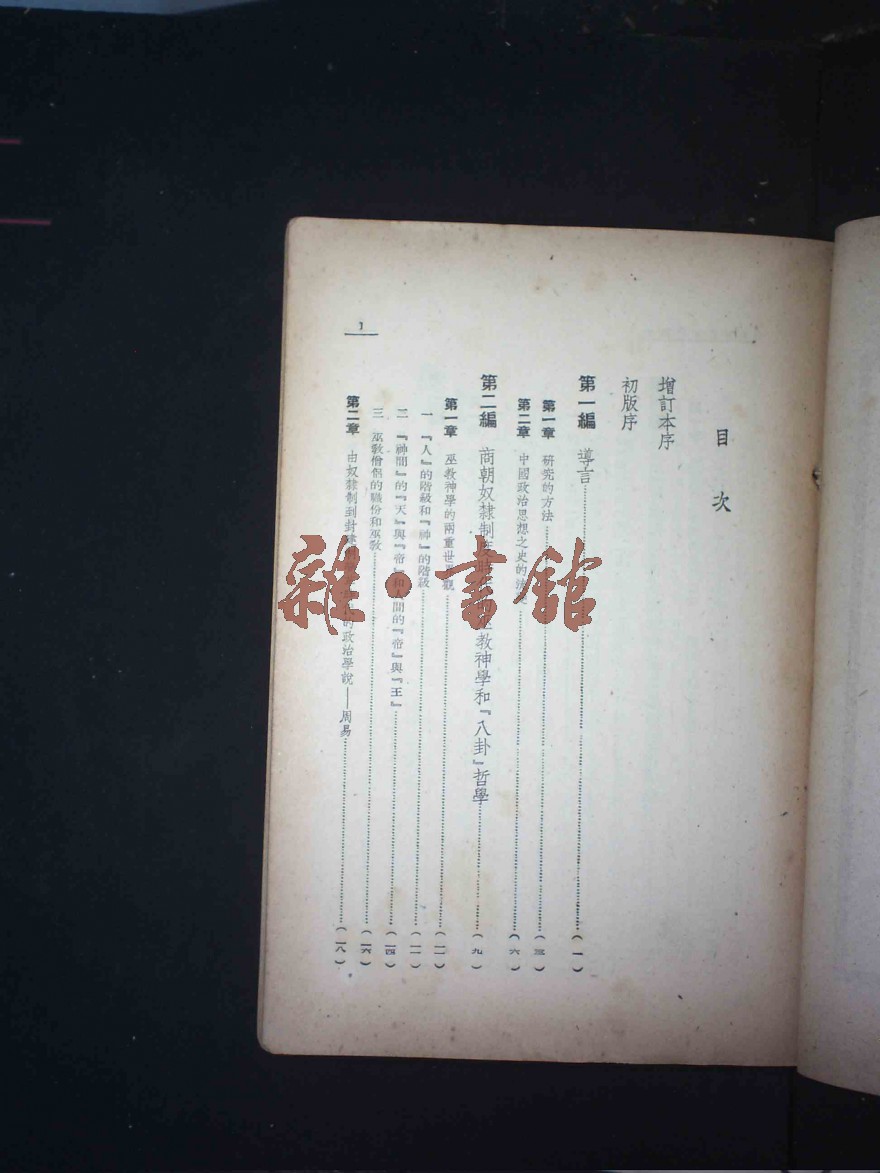 目次
增訂本序
初版序
第一編 導言……(一)
第一章 研究的方法……(三)
第二章 中國政治思想之史的……(六)
第二編 商朝奴隸制度時 巫教神學和『八卦』哲學……(九)
第一章 巫教神學的兩重世界觀……(一一)
一 『人』的階級和『神』的階級……(一一)
二 『神間』的『天』與『帝』和人間的『帝』與『王』……(一四)
三 巫教僧侶的職份和巫教……(一六)
第二章 由奴隸制到封建 的政治學說——周易……(一八)
1
雜·書館